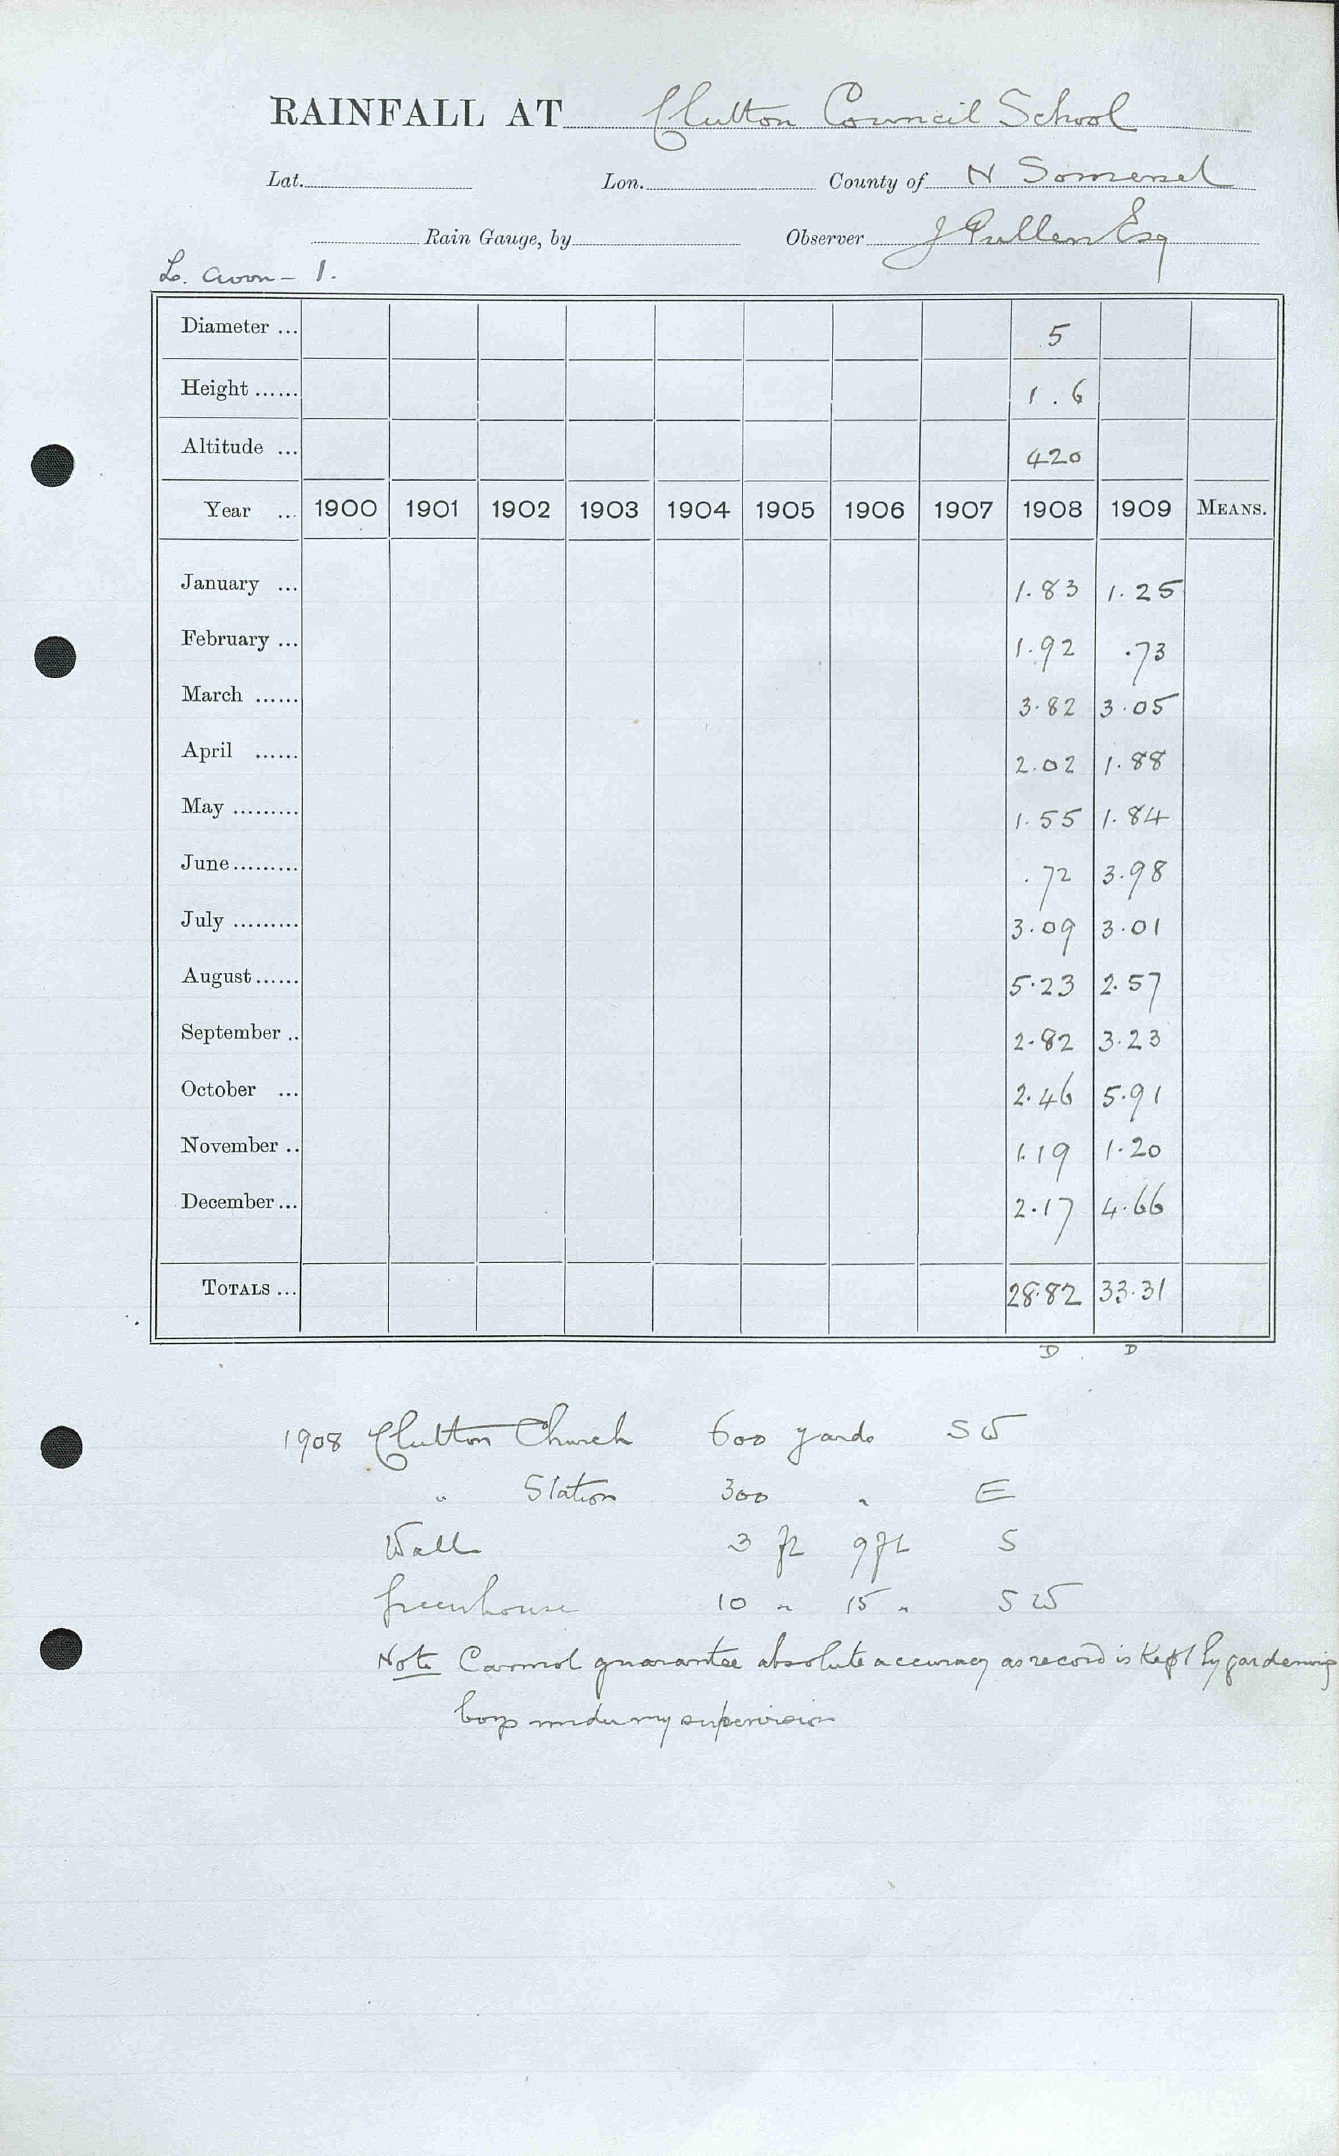 RAINFALL AT Clutton Council School
Lat. Lon. County of N Somerset
Rain Gauge, by Observer J Pullen Esq
L. Avon – 1.
Diameter ... 5
Height ...... 1.6
Altitude ... 420
Year ... 1900 1901 1902 1903 1904 1905 1906 1907 1908 1909 MEANS.
January ... 1.83 1.25
February ... 1.92 .73
March ...... 3.82 3.05
April ...... 2.02 1.88
May ......... 1.55 1.84
June ......... .72 3.98
July ......... 3.09 3.01
August ...... 5.23 2.57
September .. 2.82 3.23
October ... 2.46 5.91
November .. 1.19 1.20
December ... 2.17 4.66
TOTALS ... 28.82 33.31
D D
1908 Clutton Church 600 yards SW
" Station 300 " E
Wall 3 ft 9 ft S
Greenhouse 10 " 15 " SW
Note Cannot guarantee absolute accuracy as record is kept by gardening
boys under my supervision